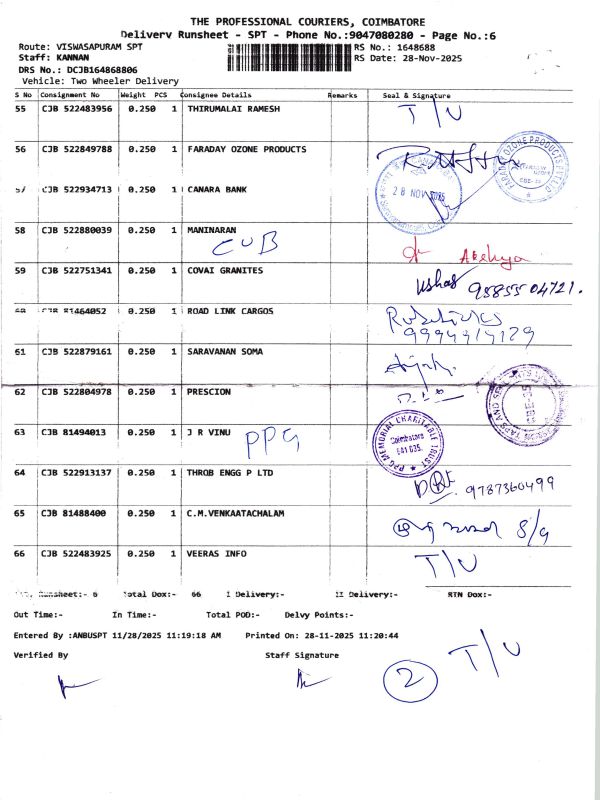 THE PROFESSIONAL COURIERS, COIMBATORE
Delivery Runsheet - SPT - Phone No.:9047080280 - Page No.:6
Route: VISWASAPURAM SPT RS No.: 1648688
Staff: KANNAN RS Date: 28-Nov-2025
DRS No.: DCJB164868806
Vehicle: Two Wheeler Delivery
S No Consignment No Weight PCS Consignee Details Remarks Seal & Signature
55 CJB 522483956 0.250 1 THIRUMALAI RAMESH T/U
56 CJB 522849788 0.250 1 FARADAY OZONE PRODUCTS
FARADAY OZONE PRODUCTS PVT LTD
57 CJB 522934713 0.250 1 CANARA BANK
28 NOV 2025
58 CJB 522880039 0.250 1 MANINARAN
CUB
59 CJB 522751341 0.250 1 COVAI GRANITES
Ushas 95855 04721.
60 CJB 81464052 0.250 1 ROAD LINK CARGOS
61 CJB 522879161 0.250 1 SARAVANAN SOMA
62 CJB 522804978 0.250 1 PRESCION
63 CJB 81494013 0.250 1 J R VINU PPG
PPG MEMORIAL CHARITABLE TRUST
Coimbatore
641 035.
64 CJB 522913137 0.250 1 THROB ENGG P LTD
9787360499
65 CJB 81488400 0.250 1 C.M.VENKAATACHALAM
S/g
66 CJB 522483925 0.250 1 VEERAS INFO T/U
Runsheet:- 6 Total Dox:- 66 I Delivery:- II Delivery:- RTN Dox:-
Out Time:- In Time:- Total POD:- Delvy Points:-
Entered By :ANBUSPT 11/28/2025 11:19:18 AM Printed On: 28-11-2025 11:20:44
Verified By Staff Signature T/U
2